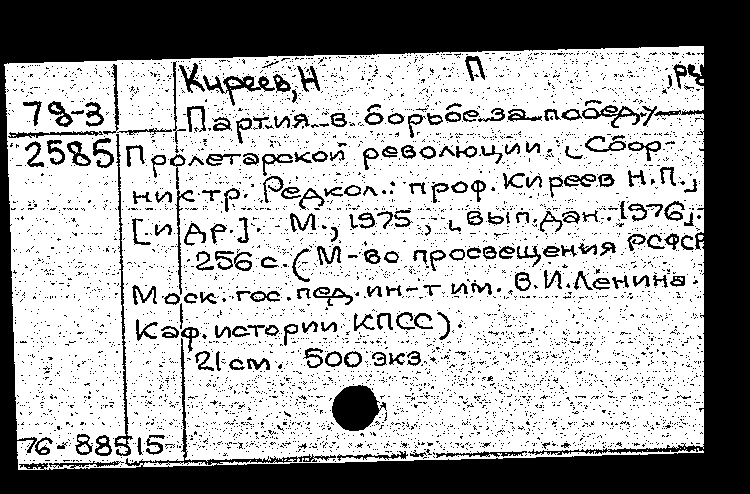 Киреев, Н П , ре
78-3
Партия в борьбе за победу
2585 Пролетарской революции. [Сбор-
ник тр. Редкол.: проф. Киреев Н.П.,
[и др.]. М., 1975, [вып. дан. 1976].
256 с. (М-во просвещения РСФСР
Моск. гос. пед. ин-т им. В.И.Ленина.
Каф. истории КПСС).
21 cm. 500 экз.
76-88515